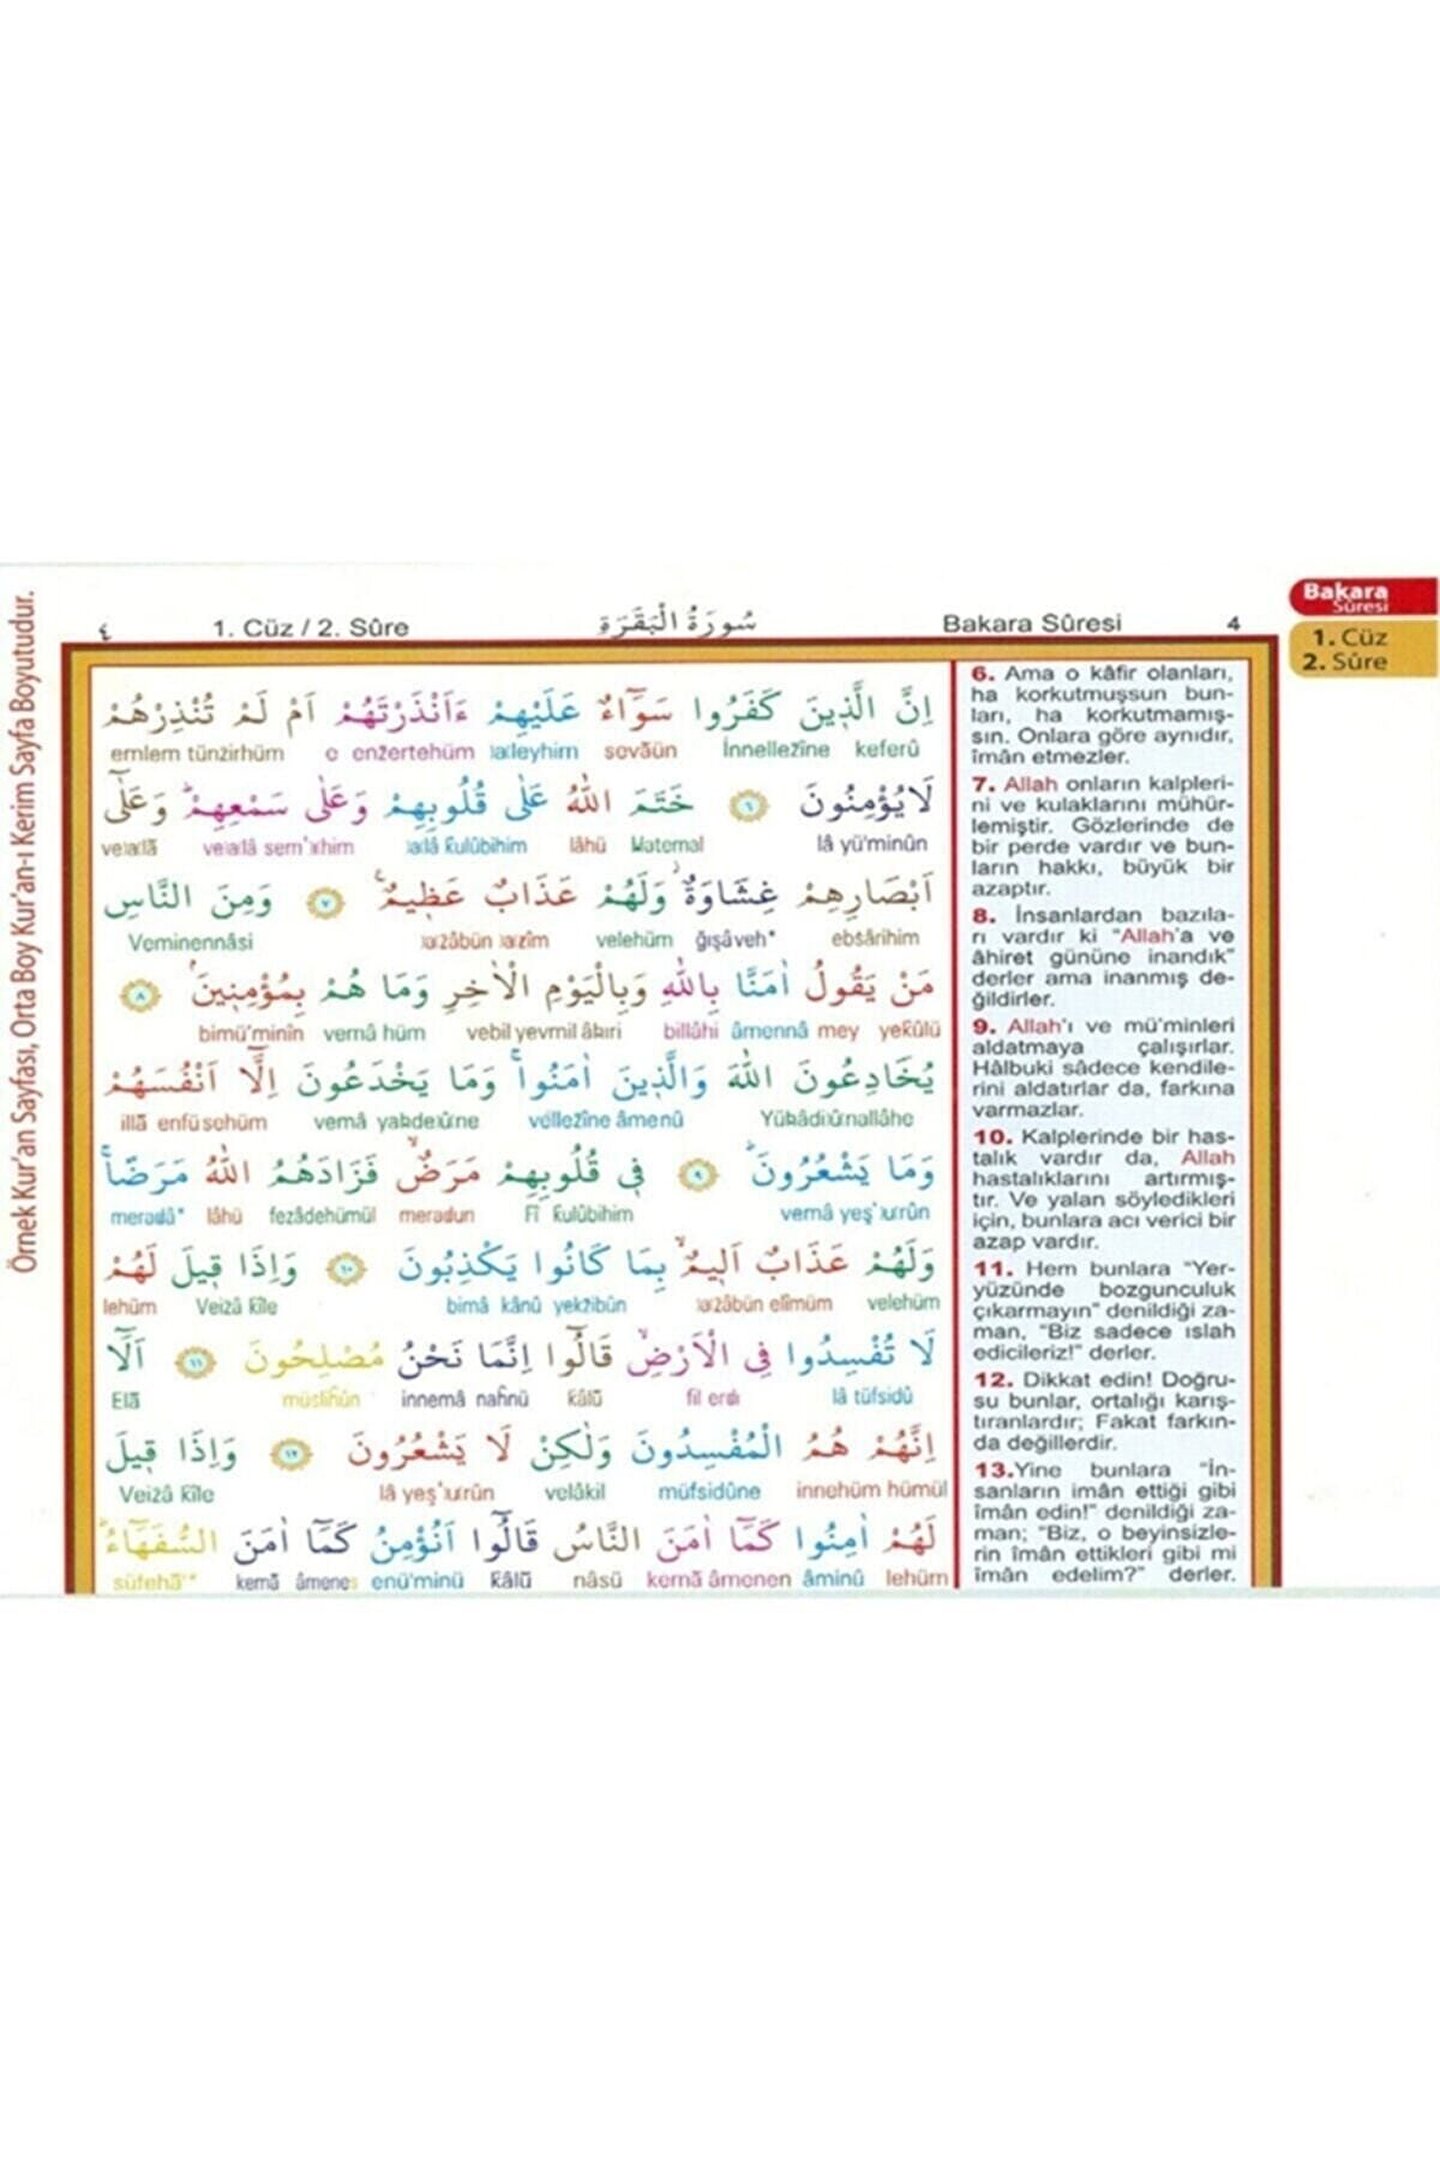 Örnek Kur'an Sayfası, Orta Boy Kur'an-ı Kerim Sayfa Boyutudur.
٤ 1. Cüz / 2. Sûre سُورَةُ الْبَقَرَةِ Bakara Sûresi 4
Bakara
Sûresi
1. Cüz
2. Sûre
اِنَّ الَّذٖينَ كَفَرُوا سَوَٓاءٌ عَلَيْهِمْ ءَاَنْذَرْتَهُمْ اَمْ لَمْ تُنْذِرْهُمْ
İnnellezîne keferû sevâün aleyhim e enzertehüm emlem tünzirhüm
لَايُؤْمِنُونَ ﴿٦﴾ خَتَمَ اللّٰهُ عَلٰى قُلُوبِهِمْ وَعَلٰى سَمْعِهِمْؕ وَعَلٰٓى
lâ yü'minûn lâhü
اَبْصَارِهِمْ غِشَاوَةٌؗ وَلَهُمْ عَذَابٌ عَظٖيمٌࣖ ﴿٧﴾ وَمِنَ النَّاسِ
ebsârihim ğışâveh* velehüm Veminennâsi
مَنْ يَقُولُ اٰمَنَّا بِاللّٰهِ وَبِالْيَوْمِ الْاٰخِرِ وَمَا هُمْ بِمُؤْمِنٖينَۘ ﴿٨﴾
mey yekûlü âmennâ billâhi vebil yevmil vemâ hüm bimü'minîn
يُخَادِعُونَ اللّٰهَ وَالَّذٖينَ اٰمَنُواۚ وَمَا يَخْدَعُونَ اِلَّٓا اَنْفُسَهُمْ
vellezîne âmenû vemâ illâ enfüsehüm
وَمَا يَشْعُرُونَؕ ﴿٩﴾ فٖي قُلُوبِهِمْ مَرَضٌۙ فَزَادَهُمُ اللّٰهُ مَرَضًاۚ
Fî kulûbihim fezâdehümül lâhü
وَلَهُمْ عَذَابٌ اَلٖيمٌۙ بِمَا كَانُوا يَكْذِبُونَ ﴿١٠﴾ وَاِذَا قٖيلَ لَهُمْ
velehüm elîmüm bimâ kânû yekzibûn Veizâ kîle lehüm
لَا تُفْسِدُوا فِي الْاَرْضِۙ قَالُٓوا اِنَّمَا نَحْنُ مُصْلِحُونَ ﴿١١﴾ اَلَٓا
lâ tüfsidû kâlû innemâ nahnü müslihûn Elâ
اِنَّهُمْ هُمُ الْمُفْسِدُونَ وَلٰكِنْ لَا يَشْعُرُونَ ﴿١٢﴾ وَاِذَا قٖيلَ
innehüm hümül müfsidûne velâkil Veizâ kîle
لَهُمْ اٰمِنُوا كَمَٓا اٰمَنَ النَّاسُ قَالُٓوا اَنُؤْمِنُ كَمَٓا اٰمَنَ السُّفَهَٓاءُؕ
lehüm âminû kemâ âmenen nâsü kâlû enü'minü kemâ âmenes süfehâ'*
6. Ama o kâfir olanları,
ha korkutmuşsun bun-
ları, ha korkutmamış-
sın. Onlara göre aynıdır,
îmân etmezler.
7. Allah onların kalpleri-
ni ve kulaklarını mühür-
lemiştir. Gözlerinde de
bir perde vardır ve bun-
ların hakkı, büyük bir
azaptır.
8. İnsanlardan bazıla-
rı vardır ki "Allah'a ve
âhiret gününe inandık"
derler ama inanmış de-
ğildirler.
9. Allah'ı ve mü'minleri
aldatmaya çalışırlar.
Hâlbuki sâdece kendile-
rini aldatırlar da, farkına
varmazlar.
10. Kalplerinde bir has-
talık vardır da, Allah
hastalıklarını artırmış-
tır. Ve yalan söyledikleri
için, bunlara acı verici bir
azap vardır.
11. Hem bunlara "Yer-
yüzünde bozgunculuk
çıkarmayın" denildiği za-
man, "Biz sadece ıslah
edicileriz!" derler.
12. Dikkat edin! Doğru-
su bunlar, ortalığı karış-
tıranlardır; Fakat farkın-
da değillerdir.
13.Yine bunlara "İn-
sanların imân ettiği gibi
îmân edin!" denildiği za-
man; "Biz, o beyinsizle-
rin îmân ettikleri gibi mi
îmân edelim?" derler.